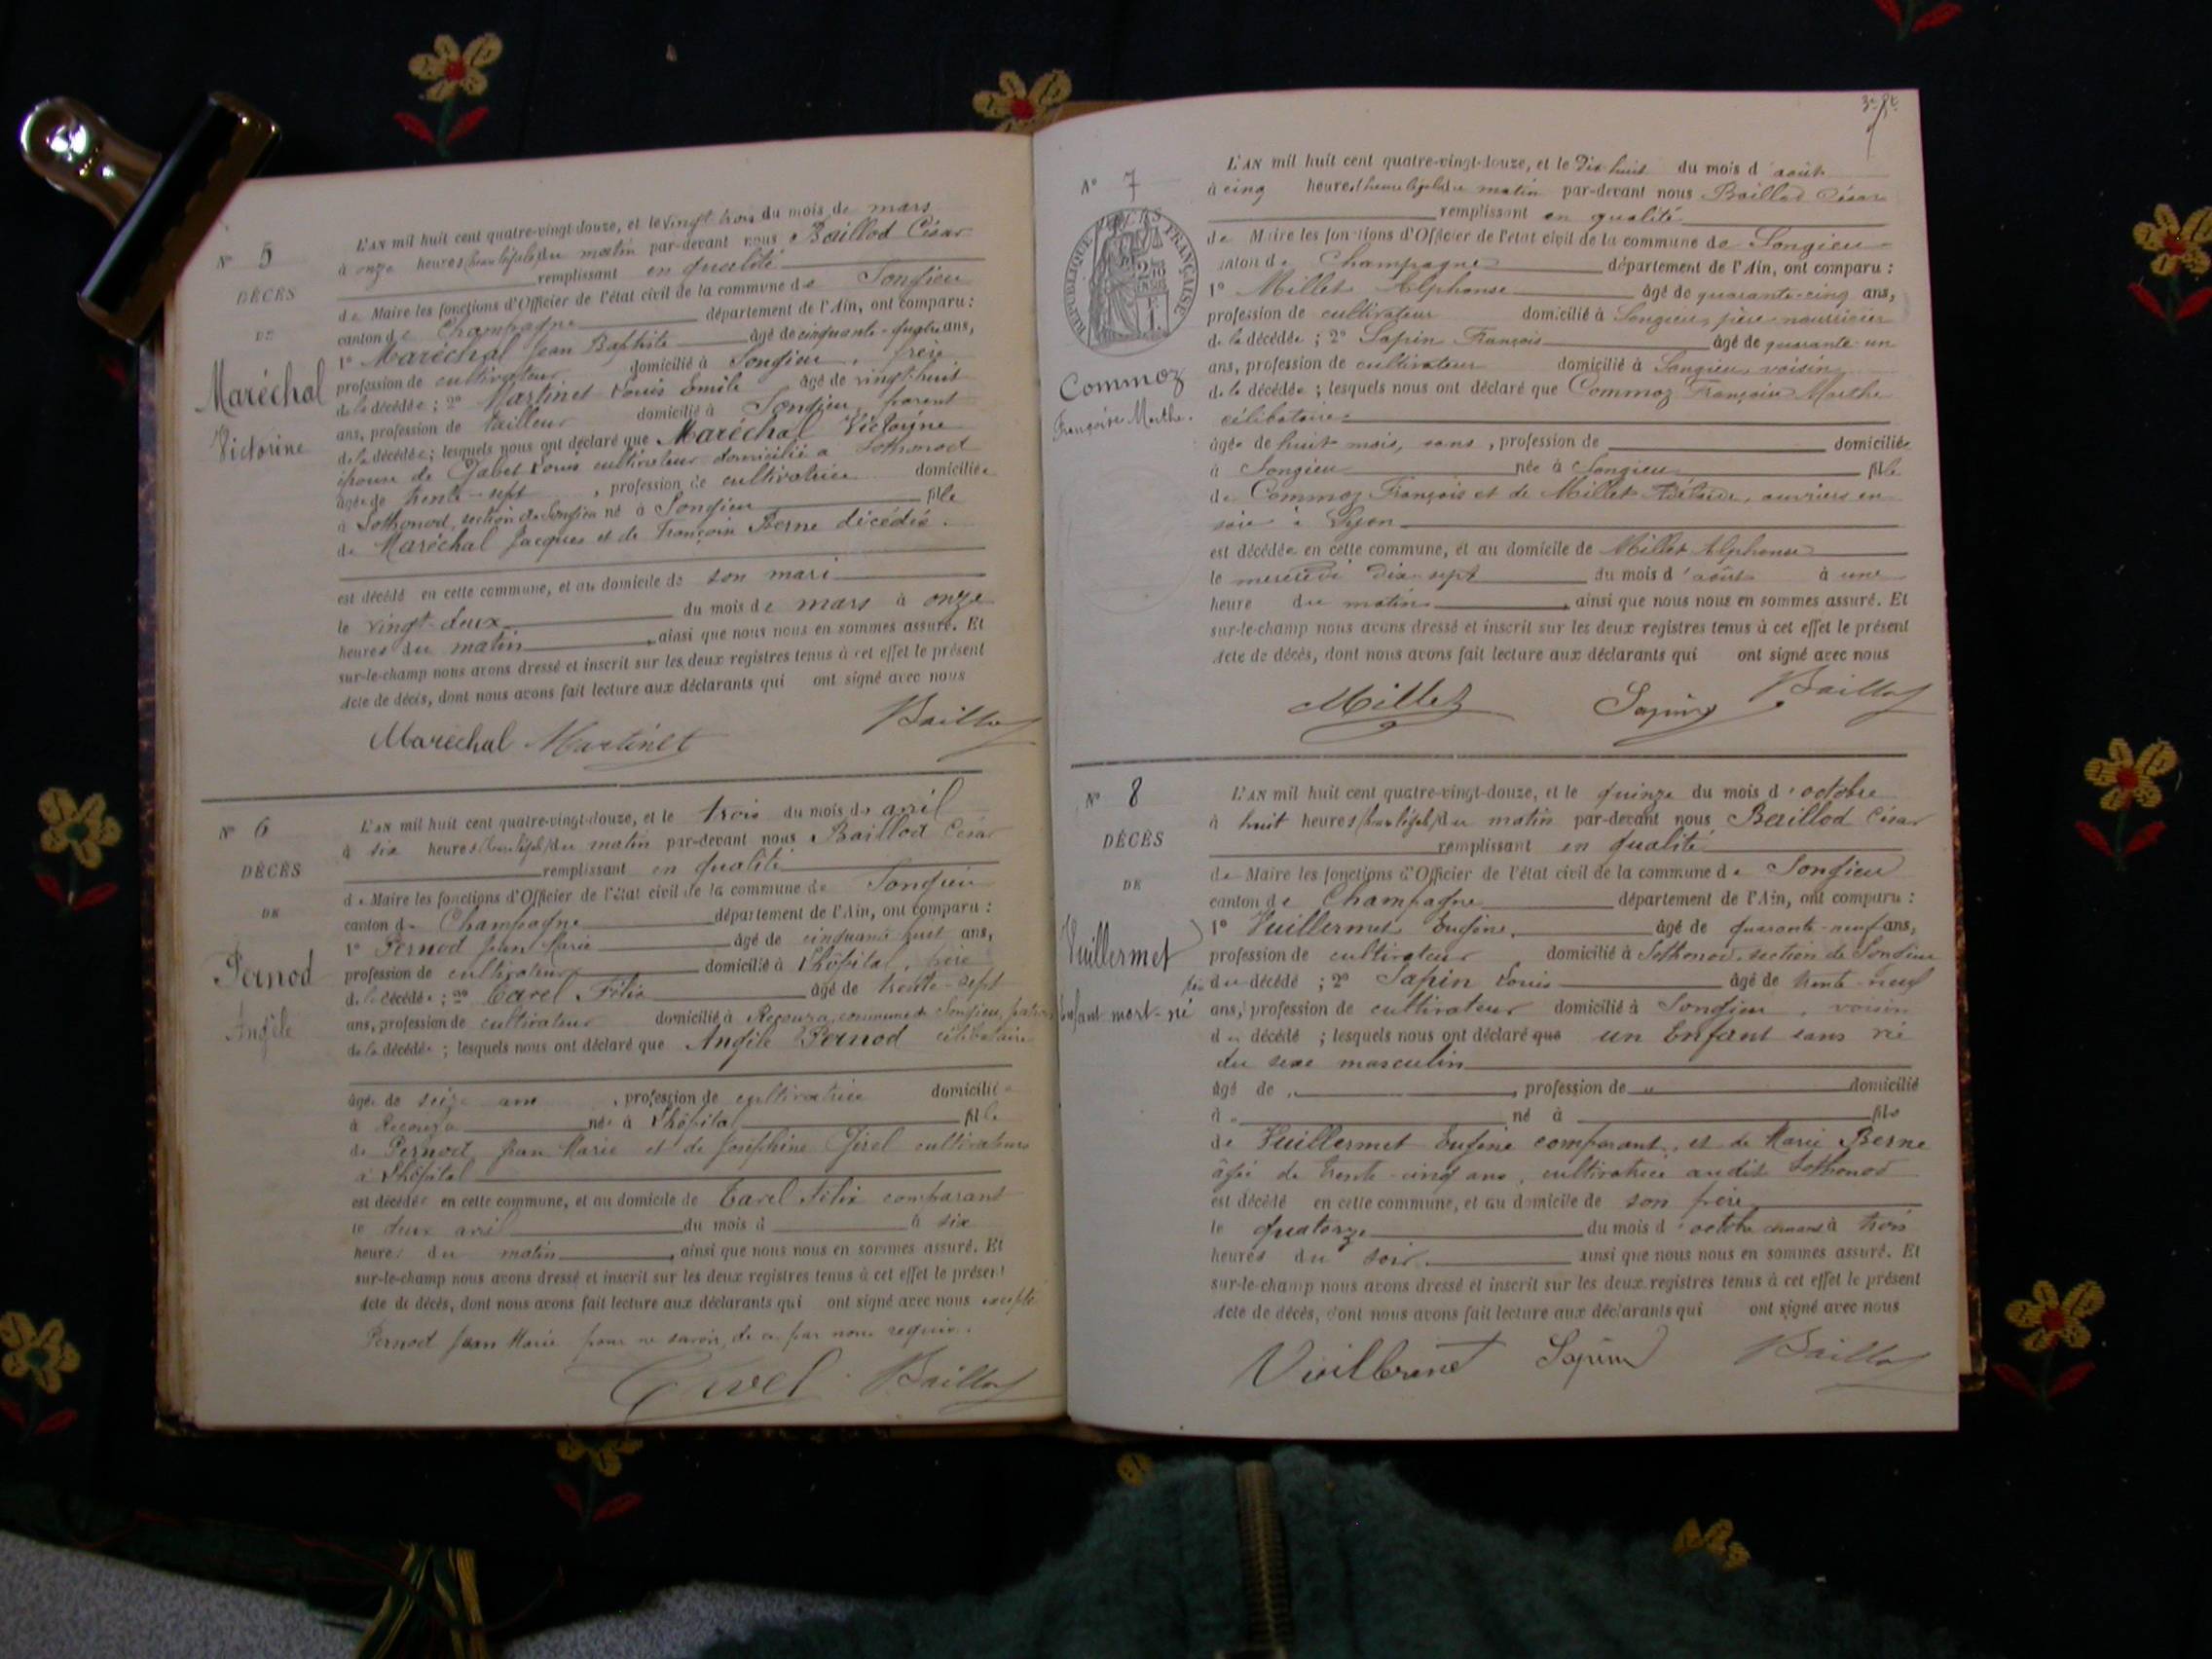 N° 5
DÉCÈS
DE
Maréchal
Victorine
L'AN mil huit cent quatre-vingt-douze, et le vingt trois du mois de mars
à onze heures (heure légale) du matin par-devant nous Baillod César
remplissant en qualité
de Maire les fonctions d'Officier de l'état civil de la commune de Songieu
canton de Champagne département de l'Ain, ont comparu :
1° Maréchal Jean Baptiste âgé de cinquante-quatre ans,
profession de cultivateur domicilié à Songieu, frère
de la décédée ; 2° Martinet Louis Emile âgé de vingt-huit
ans, profession de tailleur domicilié à Songieu, parent
de la décédée ; lesquels nous ont déclaré que Maréchal Victorine
épouse de Louis cultivateur domicilié à Sothonod
âgée de trente-sept , profession de cultivatrice domiciliée
à Sothonod, section de Songieu né à Songieu fille
de Maréchal Jacques et de Françoise Berne décédés.
est décédé en cette commune, et au domicile de son mari
le vingt-deux du mois de mars à onze
heures du matin , ainsi que nous nous en sommes assuré. Et
sur-le-champ nous avons dressé et inscrit sur les deux registres tenus à cet effet le présent
Acte de décès, dont nous avons fait lecture aux déclarants qui ont signé avec nous
Maréchal Martinet Baillod
N° 6
DÉCÈS
DE
Pernod
Angèle
L'AN mil huit cent quatre-vingt-douze, et le trois du mois de avril
à six heures (heure légale) du matin par-devant nous Baillod César
remplissant en qualité
de Maire les fonctions d'Officier de l'état civil de la commune de Songieu
canton de Champagne département de l'Ain, ont comparu :
1° Pernod Jean Marie âgé de cinquante huit ans,
profession de cultivateur domicilié à l'hôpital, père
de la décédée ; 2° Carel Félix âgé de trente-sept
ans, profession de cultivateur domicilié à commune de Songieu, patron
de la décédée ; lesquels nous ont déclaré que Angèle Pernod célibataire
âgée de seize ans , profession de cultivatrice domiciliée
à née à l'hôpital fille
de Pernod Jean Marie et de Joséphine cultivateurs
à l'hôpital
est décédée en cette commune, et au domicile de Carel Félix comparant
le deux avril du mois d à six
heures du matin , ainsi que nous nous en sommes assuré. Et
sur-le-champ nous avons dressé et inscrit sur les deux registres tenus à cet effet le présent
Acte de décès, dont nous avons fait lecture aux déclarants qui ont signé avec nous excepté
Pernod Jean Marie pour ne savoir, de ce par nous requis.
Carel Baillod
N° 7
RÉPUBLIQUE FRANÇAISE
Commoz
Françoise Marthe.
L'AN mil huit cent quatre-vingt-douze, et le dix huit du mois d'août
à cinq heures (heure légale) du matin par-devant nous Baillod César
remplissant en qualité
de Maire les fonctions d'Officier de l'état civil de la commune de Songieu
canton de Champagne département de l'Ain, ont comparu :
1° Millet Alphonse âgé de quarante-cinq ans,
profession de cultivateur domicilié à Songieu, père nourricier
de la décédée ; 2° Sapin François âgé de quarante un
ans, profession de cultivateur domicilié à Songieu, voisin
de la décédée ; lesquels nous ont déclaré que Commoz Françoise Marthe
célibataire
âgée de huit mois, sans , profession de domiciliée
à Songieu née à Songieu fille
de Commoz François et de Millet Adélaïde, ouvriers en
soie à Lyon
est décédée en cette commune, et au domicile de Millet Alphonse
le mercredi dix-sept du mois d'août à une
heure du matin , ainsi que nous nous en sommes assuré. Et
sur-le-champ nous avons dressé et inscrit sur les deux registres tenus à cet effet le présent
Acte de décès, dont nous avons fait lecture aux déclarants qui ont signé avec nous
Millet Sapin Baillod
N° 8
DÉCÈS
DE
Vuillermet
Enfant mort-né
L'AN mil huit cent quatre-vingt-douze, et le quinze du mois d'octobre
à huit heures (heure légale) du matin par-devant nous Baillod César
remplissant en qualité
de Maire les fonctions d'Officier de l'état civil de la commune de Songieu
canton de Champagne département de l'Ain, ont comparu :
1° Vuillermet Eugène. âgé de quarante-neuf ans,
profession de cultivateur domicilié à Sothonod, section de Songieu
du décédé ; 2° Sapin Louis âgé de trente-neuf
ans, profession de cultivateur domicilié à Songieu, voisin
du décédé ; lesquels nous ont déclaré que un Enfant sans vie
du sexe masculin
âgé de , profession de domicilié
à né à fils
de Vuillermet Eugène comparant, et de Marie Berne
âgée de trente-cinq ans, cultivatrice audit Sothonod
est décédé en cette commune, et au domicile de son frère
le quatorze du mois d'octobre courant à trois
heures du soir. ainsi que nous nous en sommes assuré. Et
sur-le-champ nous avons dressé et inscrit sur les deux registres tenus à cet effet le présent
Acte de décès, dont nous avons fait lecture aux déclarants qui ont signé avec nous
Vuillermet Sapin Baillod